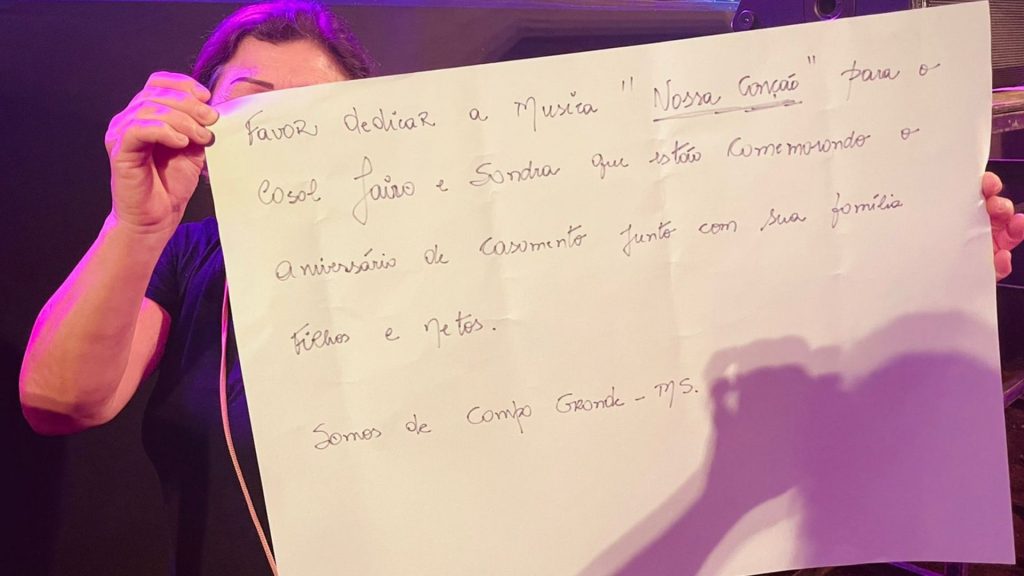 Favor dedicar a Musica "Nossa Canção" para o
Casal Jairo e Sandra que estão comemorando o
aniversário de casamento junto com sua família
filhos e netos.
Somos de Campo Grande - MS.